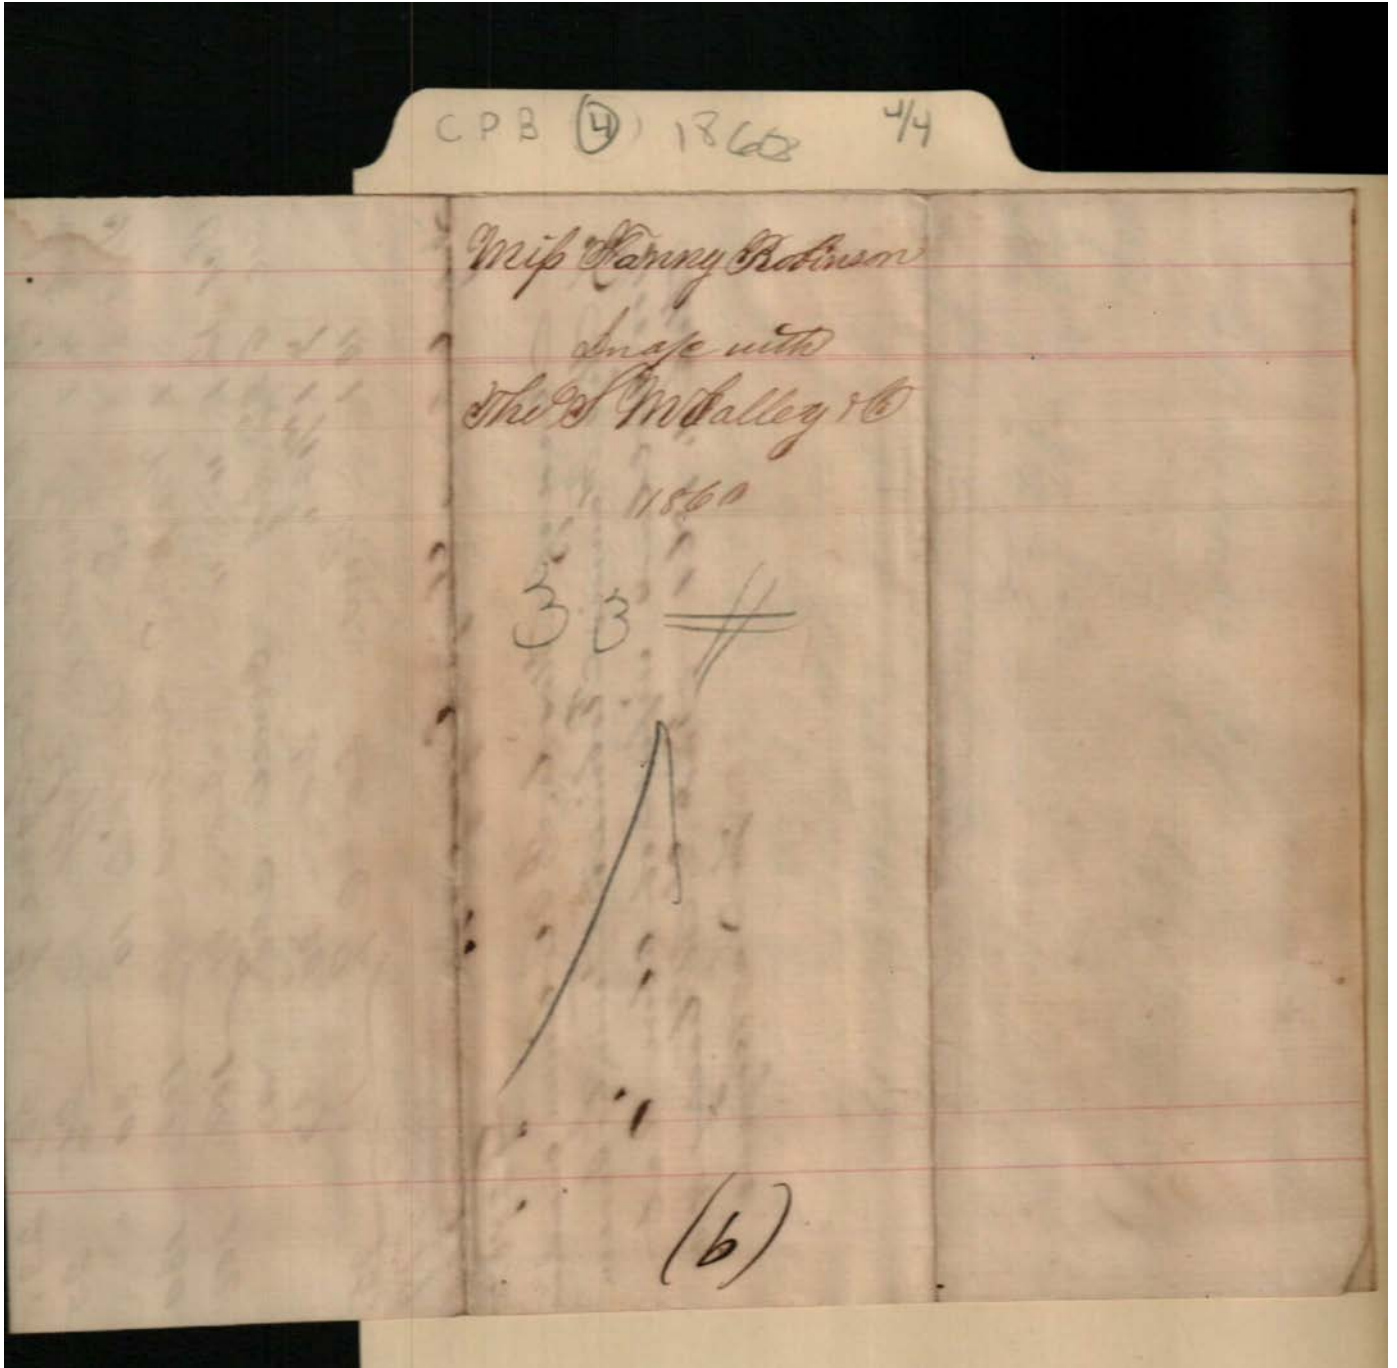 CPB (4) 1868 4/4
Miss Fanny Robinson
In a/c with
Tho S McCalley & Co
1860
33
(b)